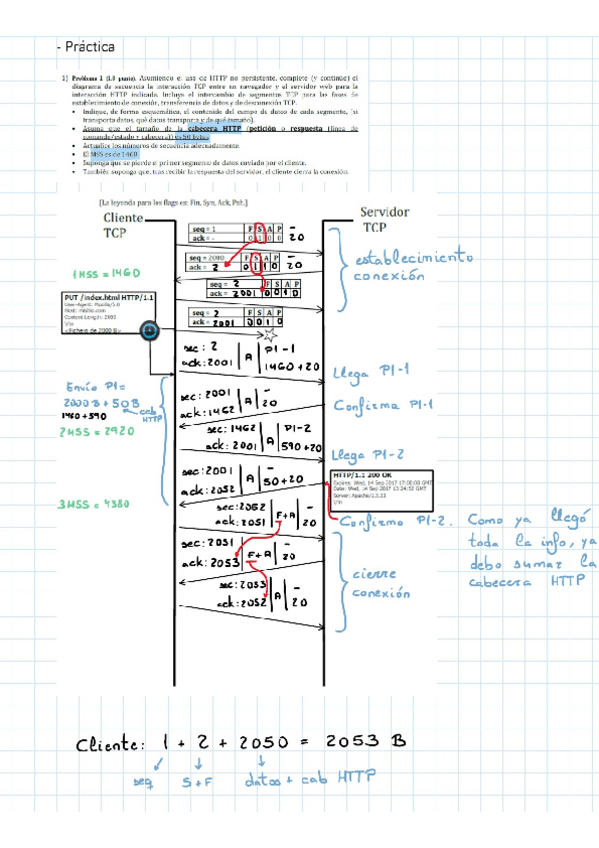 - Práctica
1) Problema 1 (1.0 punto). Asumiendo el uso de HTTP no persistente, complete (y continúe) el
diagrama de secuencia la interacción TCP entre un navegador y el servidor web para la
interacción HTTP indicada. Incluya el intercambio de segmentos TCP para las fases de
establecimiento de conexión, transferencia de datos y de desconexión TCP.
• Indique, de forma esquemática, el contenido del campo de datos de cada segmento, (si
transporta datos, qué datos transporta y de qué tamaño).
• Asuma que el tamaño de la cabecera HTTP (petición o respuesta (línea de
comando/estado + cabecera)) es 50 bytes
• Actualice los números de secuencia adecuadamente.
• El MSS es de 1460
• Suponga que se pierde el primer segmento de datos enviado por el cliente.
• También suponga que, tras recibir la respuesta del servidor, el cliente cierra la conexión.
[La leyenda para los flags es: Fin, Syn, Ack, Psh.]
Cliente
TCP
Servidor
TCP
seq = 1 F S A P -
ack = - 0 1 0 0 20
seq = 2000 F S A P -
ack = 2 0 1 1 0 20
seq = 2 F S A P
ack = 2001 0 0 1 0
seq = 2 F S A P
ack = 2001 0 0 1 0
establecimiento
conexión
1MSS = 1460
PUT /index.html HTTP/1.1
User-Agent: Mozilla/5.0
Content Length: 2000
\r\n
<Fichero de 2000 B>
sec: 2 A P1-1
ack: 2001 1460+20
Llega P1-1
Envío P1=
2000B + 50B
1460+590
cab
HTTP
2MSS = 2920
3MSS = 4380
sec: 2001 A -
ack: 1462 20
Confirma P1-1
sec: 1462 A P1-2
ack: 2001 590+20
Llega P1-2
sec: 2001 A -
ack: 2052 50+20
HTTP/1.1 200 OK
\r\n
sec: 2052 F+A -
ack: 2051 20
Confirmo P1-2. Como ya llegó
toda la info, ya
debo sumar la
cabecera HTTP
sec: 2051 F+A -
ack: 2053 20
sec: 2053 A -
ack: 2052 20
cierre
conexión
Cliente: 1 + 2 + 2050 = 2053 B
seq S+F datos + cab HTTP